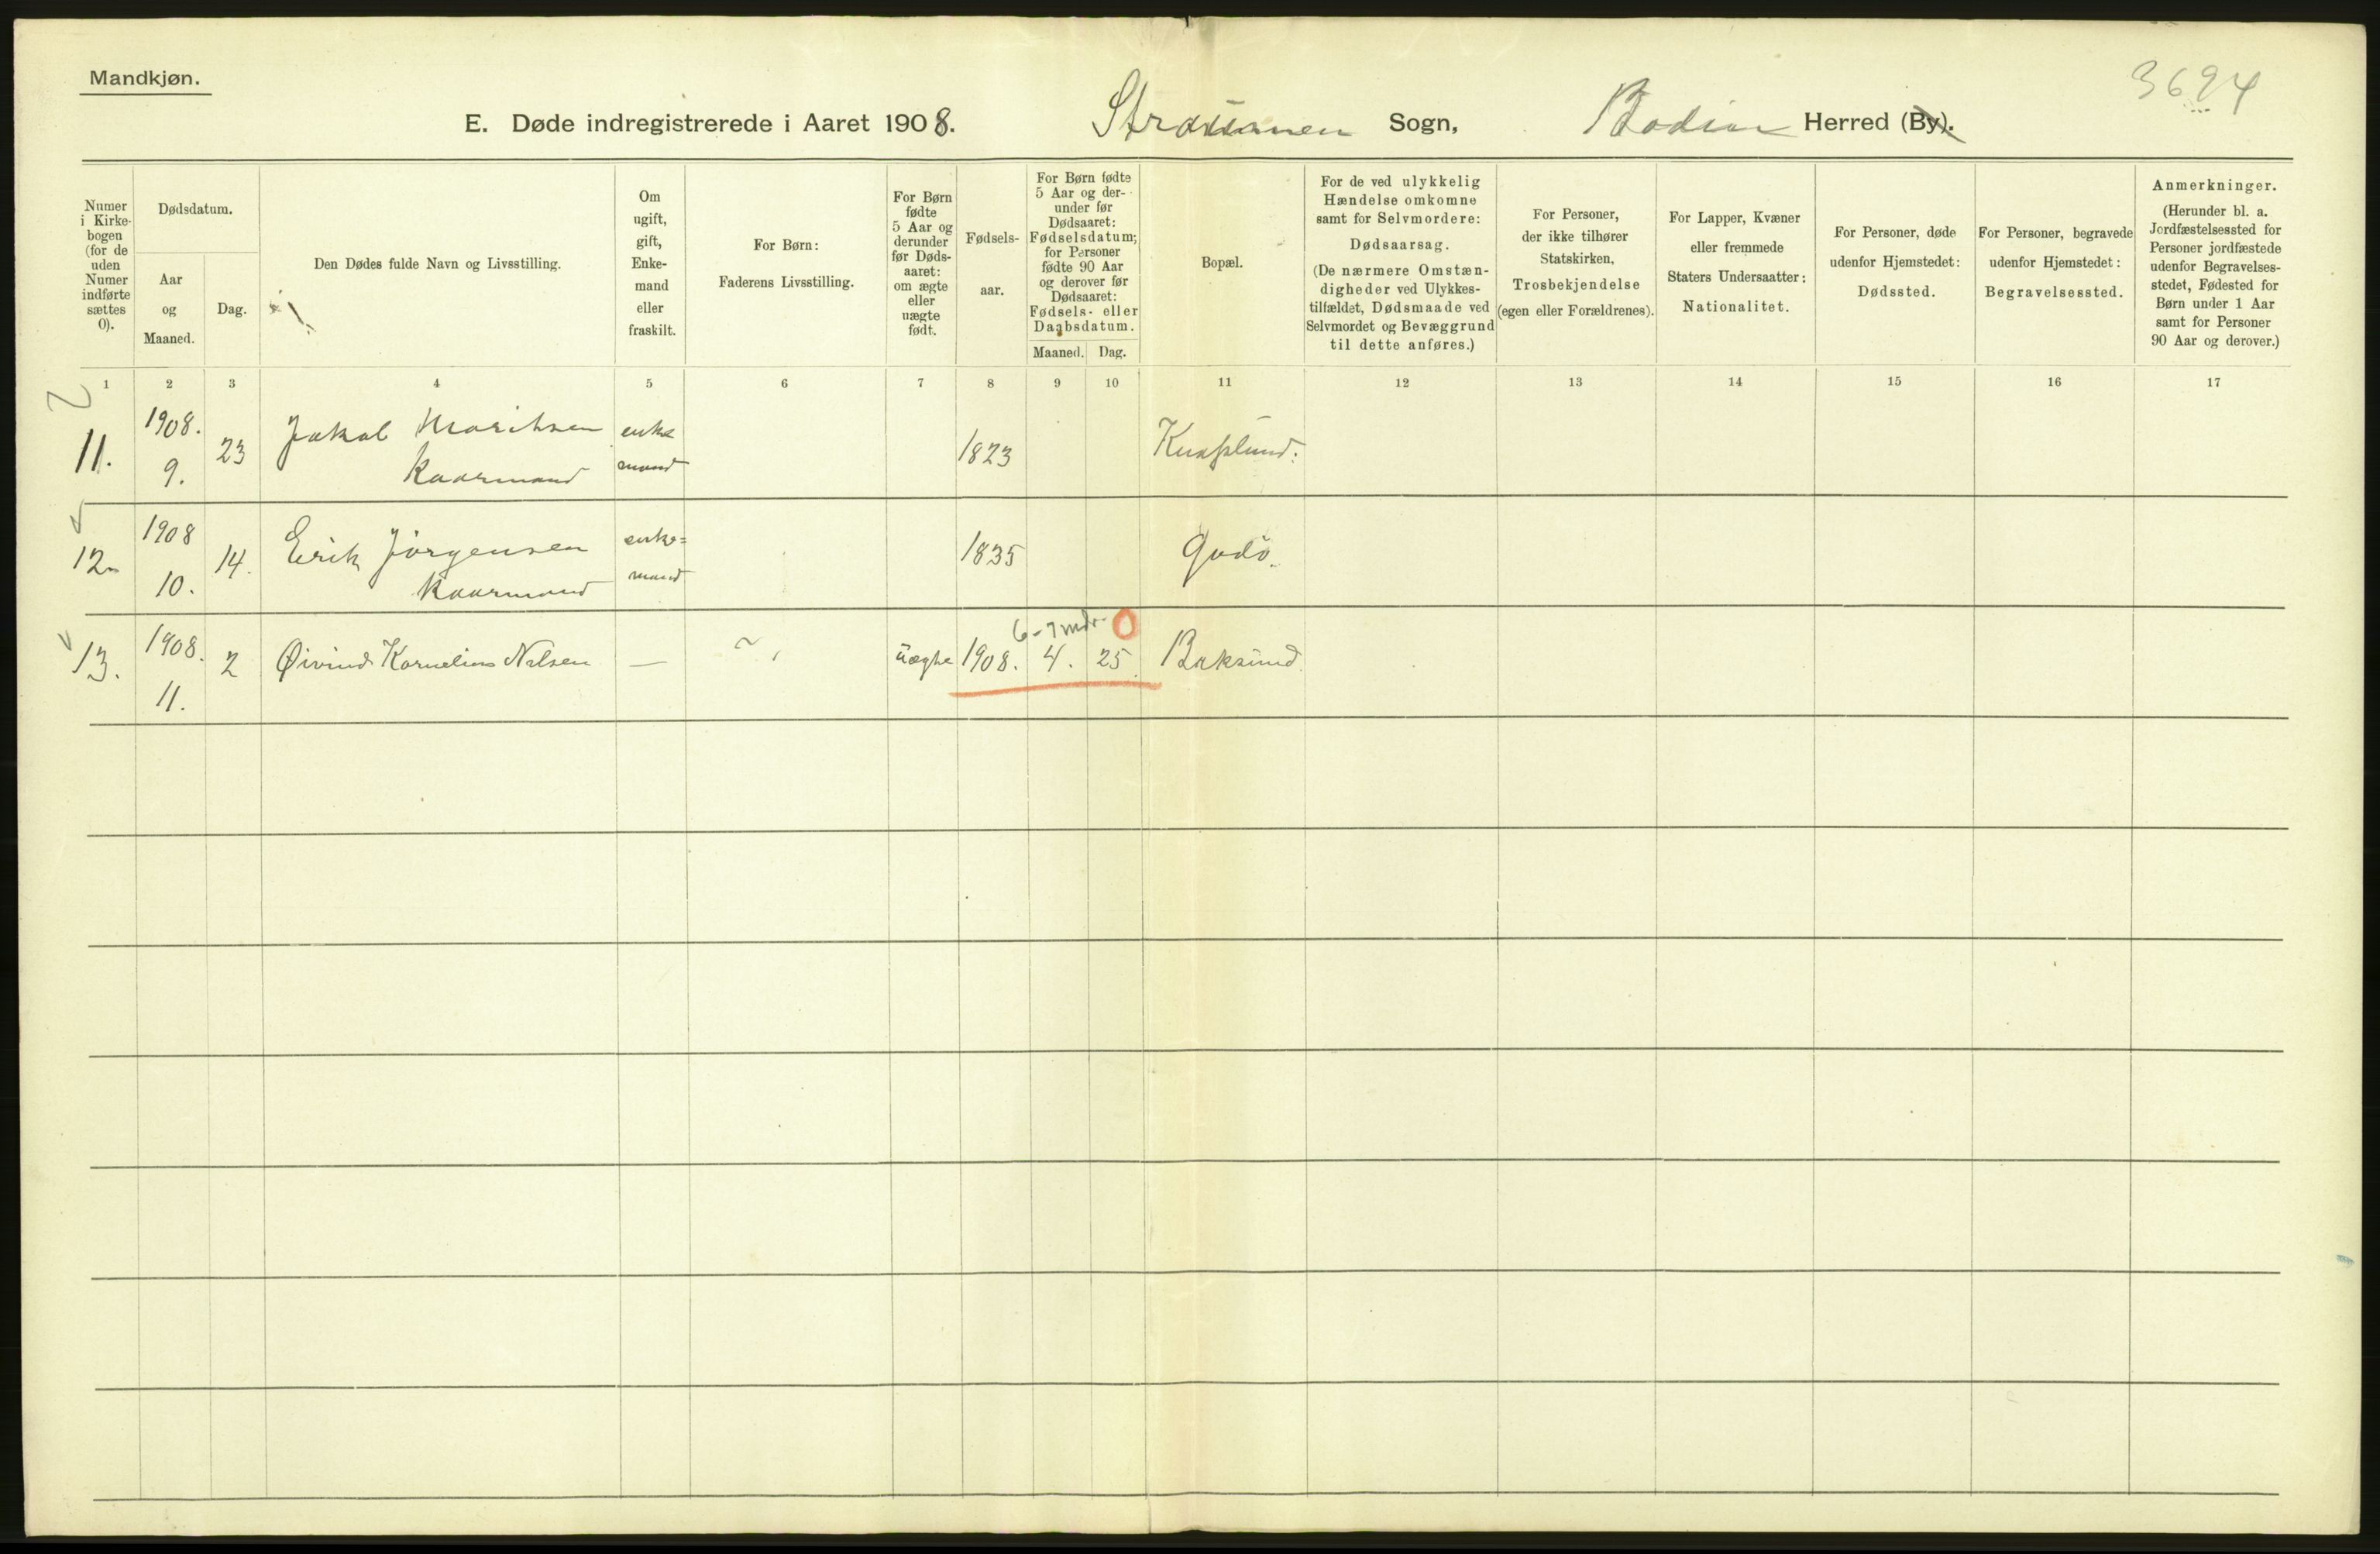 Mandkjøn.
3694
E. Døde indregistrerede i Aaret 1908. Sogn, Bodin Herred (By).
Numer i Kirke-bogen (for de uden Numer indførte sættes 0).
Dødsdatum.
Aar og Maaned.
Dag.
Den Dødes fulde Navn og Livsstilling.
Om ugift, gift, Enke-mand eller fraskilt.
For Børn: Faderens Livsstilling.
For Børn fødte 5 Aar og derunder før Døds-aaret: om ægte eller uægte født.
Fødsels-aar.
For Børn fødte 5 Aar og der-under før Dødsaaret: Fødselsdatum; for Personer fødte 90 Aar og derover før Dødsaaret: Fødsels- eller Daabsdatum.
Maaned. Dag.
Bopæl.
For de ved ulykkelig Hændelse omkomne samt for Selvmordere: Dødsaarsag. (De nærmere Omstæn-digheder ved Ulykkes-tilfældet, Dødsmaade ved Selvmordet og Bevæggrund til dette anføres.)
For Personer, der ikke tilhører Statskirken, Trosbekjendelse (egen eller Forældrenes).
For Lapper, Kvæner eller fremmede Staters Undersaatter: Nationalitet.
For Personer, døde udenfor Hjemstedet: Dødssted.
For Personer, begravede udenfor Hjemstedet: Begravelsessted.
Anmerkninger. (Herunder bl. a. Jordfæstelsessted for Personer jordfæstede udenfor Begravelses-stedet, Fødested for Børn under 1 Aar samt for Personer 90 Aar og derover.)
1 2 3 4 5 6 7 8 9 10 11 12 13 14 15 16 17
11. 1908. 9. 23 Jakob Moritsen Kaarmand enke mand 1823
12. 1908 10. 14. Erik Jörgensen Kaarmand enke= mand 1835 Godö.
6-7 mdr. 0
13. 1908. 11. 2 Øivind Kornelius Nilsen — uægte 1908. 4. 25. Baksund.